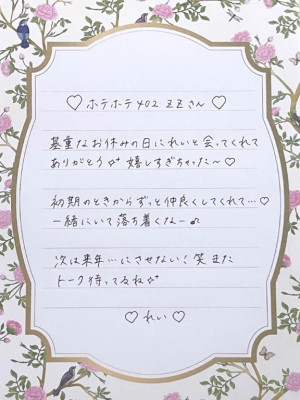 ♡ホテホテ402 ZZさん♡
貴重なお休みの日にれいと会ってくれて
ありがとう✧ 嬉しすぎちゃった〜♡
初期のときからずっと仲良くしてくれて…♡
一緒にいて落ち着くなー♪
次は来年…にさせない！笑 また
トーク待ってるね✧
♡れい♡